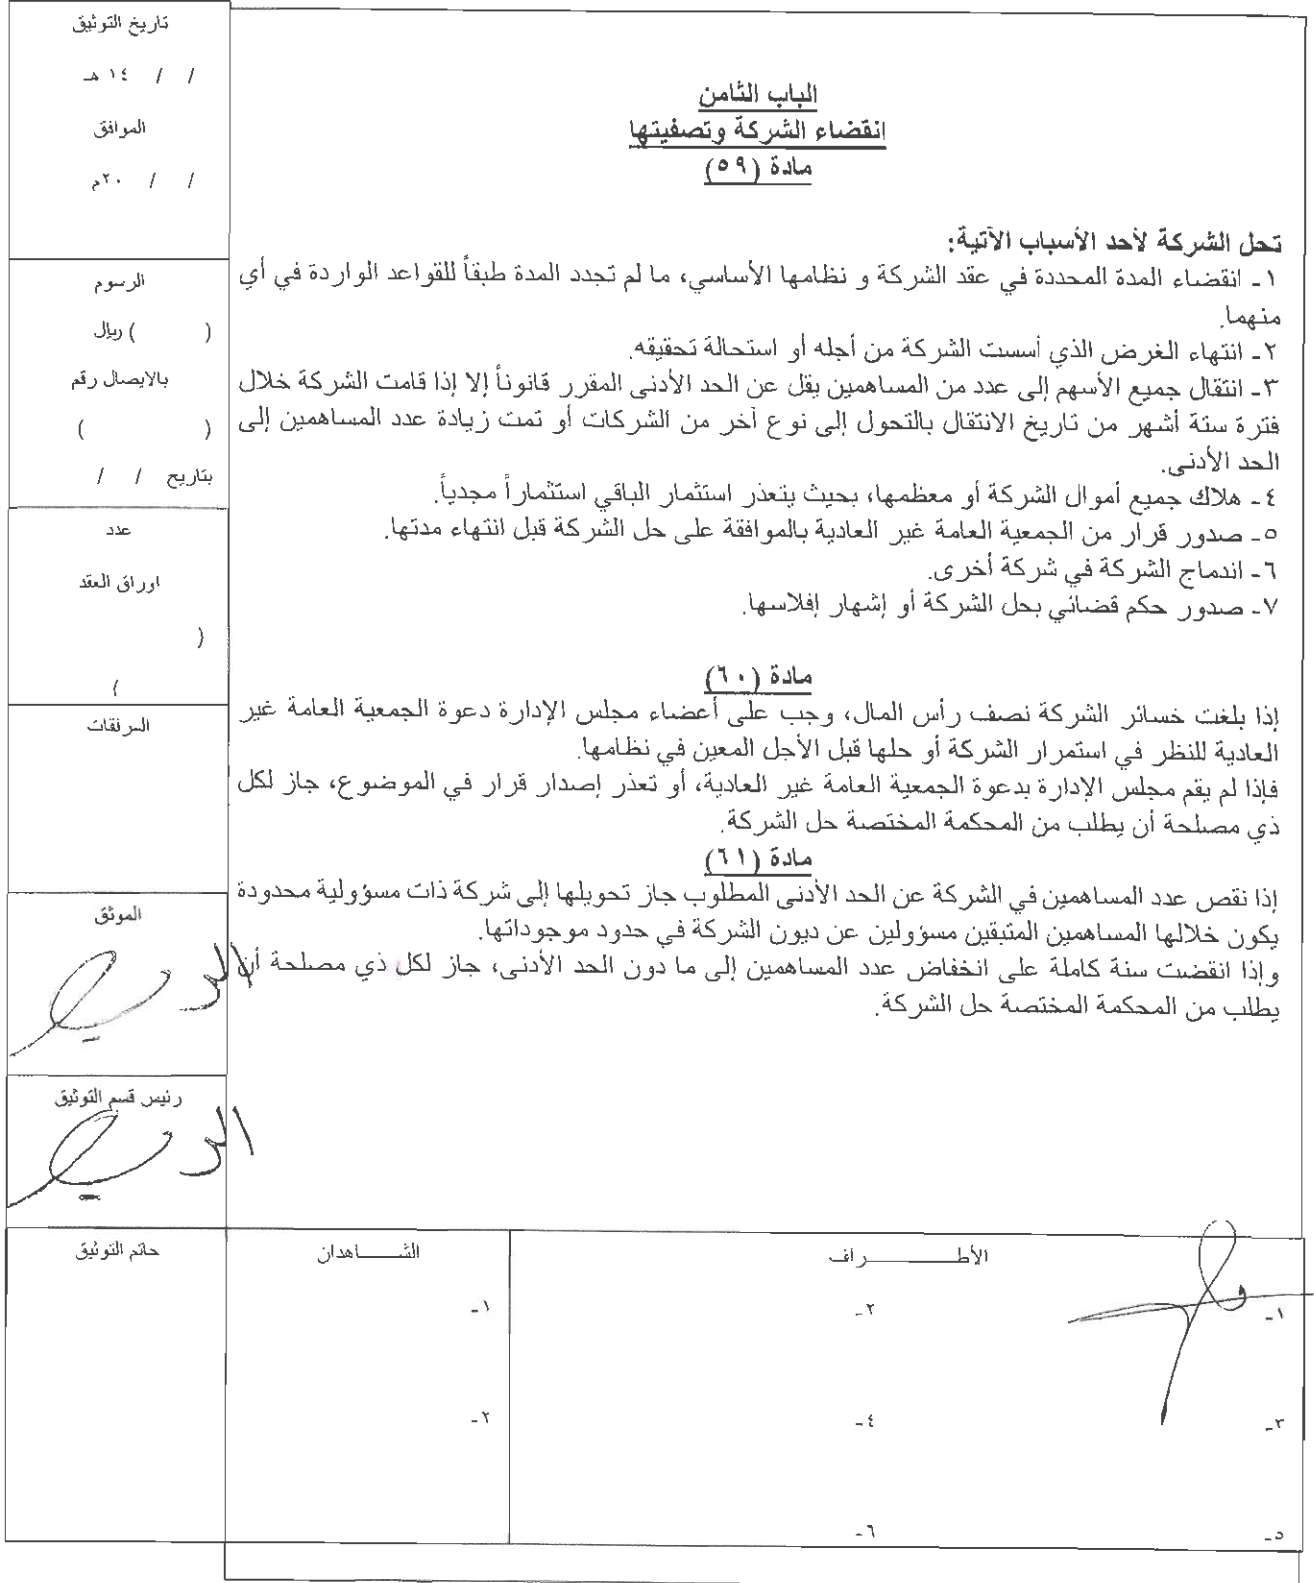 الباب الثامن
انقضاء الشركة وتصفيتها
مادة (٥٩)
تحل الشركة لأحد الأسباب الآتية:
١- انقضاء المدة المحددة في عقد الشركة و نظامها الأساسي، ما لم تجدد المدة طبقاً للقواعد الواردة في أي
منهما.
٢- انتهاء الغرض الذي أسست الشركة من أجله أو استحالة تحقيقه.
٣- انتقال جميع الأسهم إلى عدد من المساهمين يقل عن الحد الأدنى المقرر قانوناً إلا إذا قامت الشركة خلال
فترة ستة أشهر من تاريخ الانتقال بالتحول إلى نوع آخر من الشركات أو تمت زيادة عدد المساهمين إلى
الحد الأدنى.
٤- هلاك جميع أموال الشركة أو معظمها، بحيث يتعذر استثمار الباقي استثماراً مجدياً.
٥- صدور قرار من الجمعية العامة غير العادية بالموافقة على حل الشركة قبل انتهاء مدتها.
٦- اندماج الشركة في شركة أخرى.
٧- صدور حكم قضائي بحل الشركة أو إشهار إفلاسها.
مادة (٦٠)
إذا بلغت خسائر الشركة نصف رأس المال، وجب على أعضاء مجلس الإدارة دعوة الجمعية العامة غير
العادية للنظر في استمرار الشركة أو حلها قبل الأجل المعين في نظامها.
فإذا لم يقم مجلس الإدارة بدعوة الجمعية العامة غير العادية، أو تعذر إصدار قرار في الموضوع، جاز لكل
ذي مصلحة أن يطلب من المحكمة المختصة حل الشركة.
مادة (٦١)
إذا نقص عدد المساهمين في الشركة عن الحد الأدنى المطلوب جاز تحويلها إلى شركة ذات مسؤولية محدودة
يكون خلالها المساهمين المتبقين مسؤولين عن ديون الشركة في حدود موجوداتها.
وإذا انقضت سنة كاملة على انخفاض عدد المساهمين إلى ما دون الحد الأدنى، جاز لكل ذي مصلحة أن
يطلب من المحكمة المختصة حل الشركة.
تاريخ التوثيق
/ / ١٤ هـ
الموافق
/ / ٢٠م
الرسوم
( ) ريال
بالايصال رقم
( )
بتاريخ / /
عدد
اوراق العقد
(
)
المرفقات
الموثق
رئيس قسم التوثيق
الأطـــــــراف
١-
٢-
٣-
٤-
٥-
٦-
الشـــــاهدان
١-
٢-
خاتم التوثيق